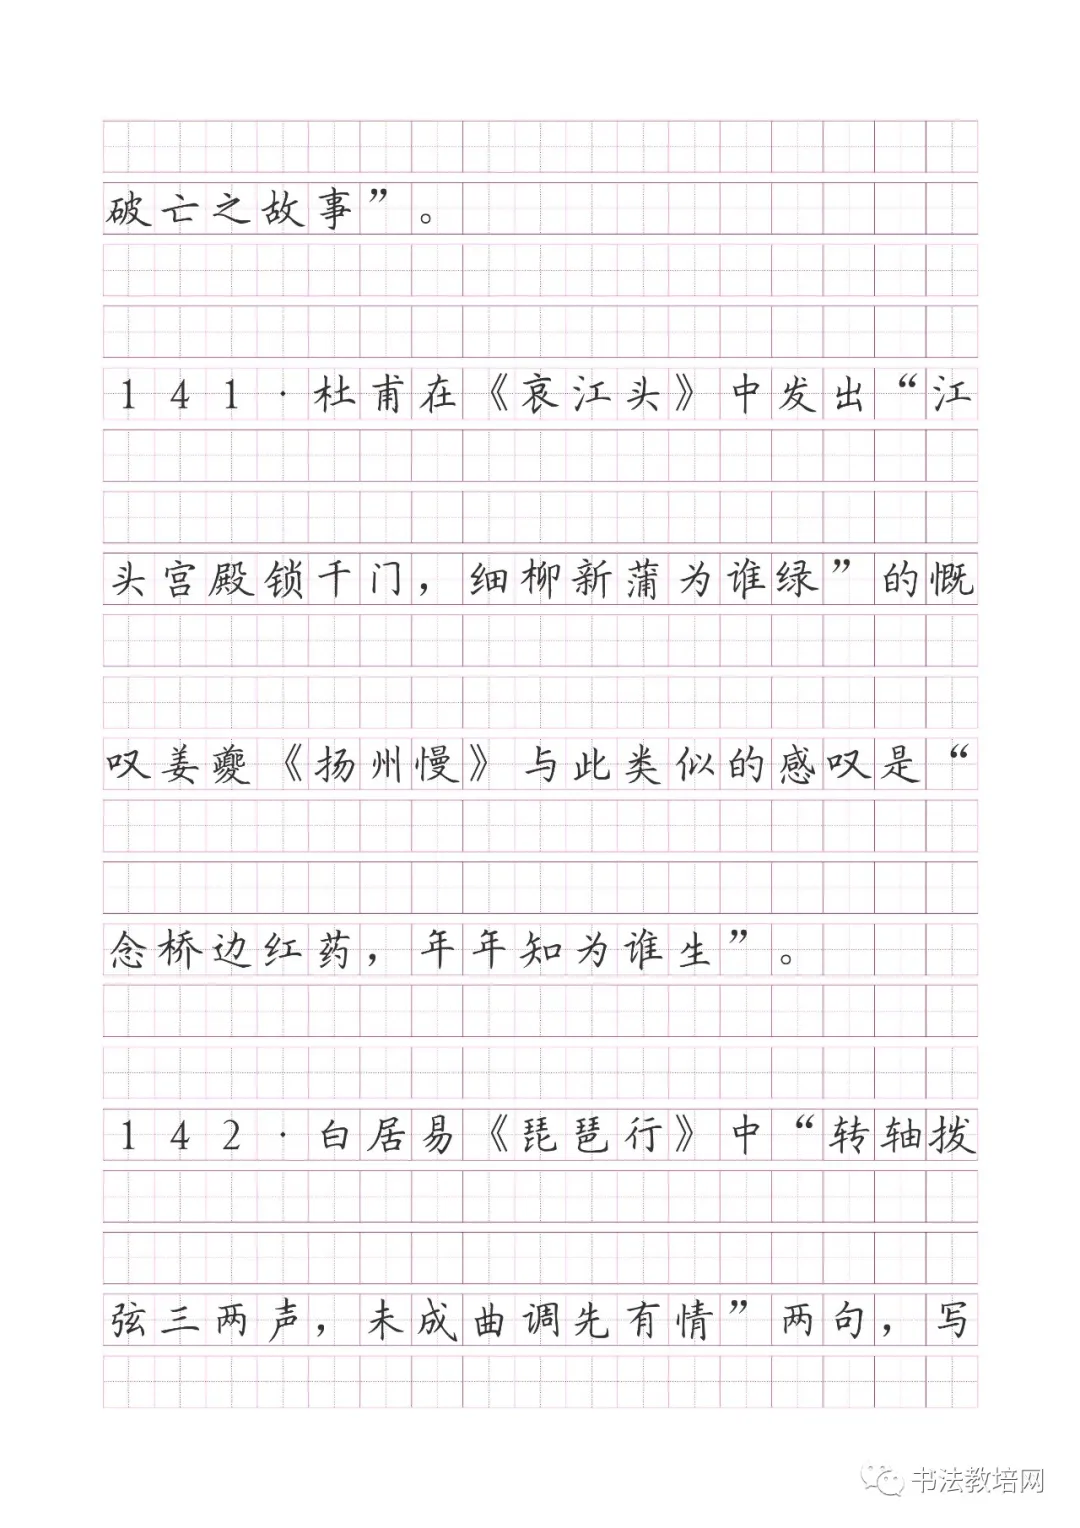 破亡之故事”。
141·杜甫在《哀江头》中发出“江
头宫殿锁千门，细柳新蒲为谁绿”的慨
叹姜夔《扬州慢》与此类似的感叹是“
念桥边红药，年年知为谁生”。
142·白居易《琵琶行》中“转轴拨
弦三两声，未成曲调先有情”两句，写
书法教培网